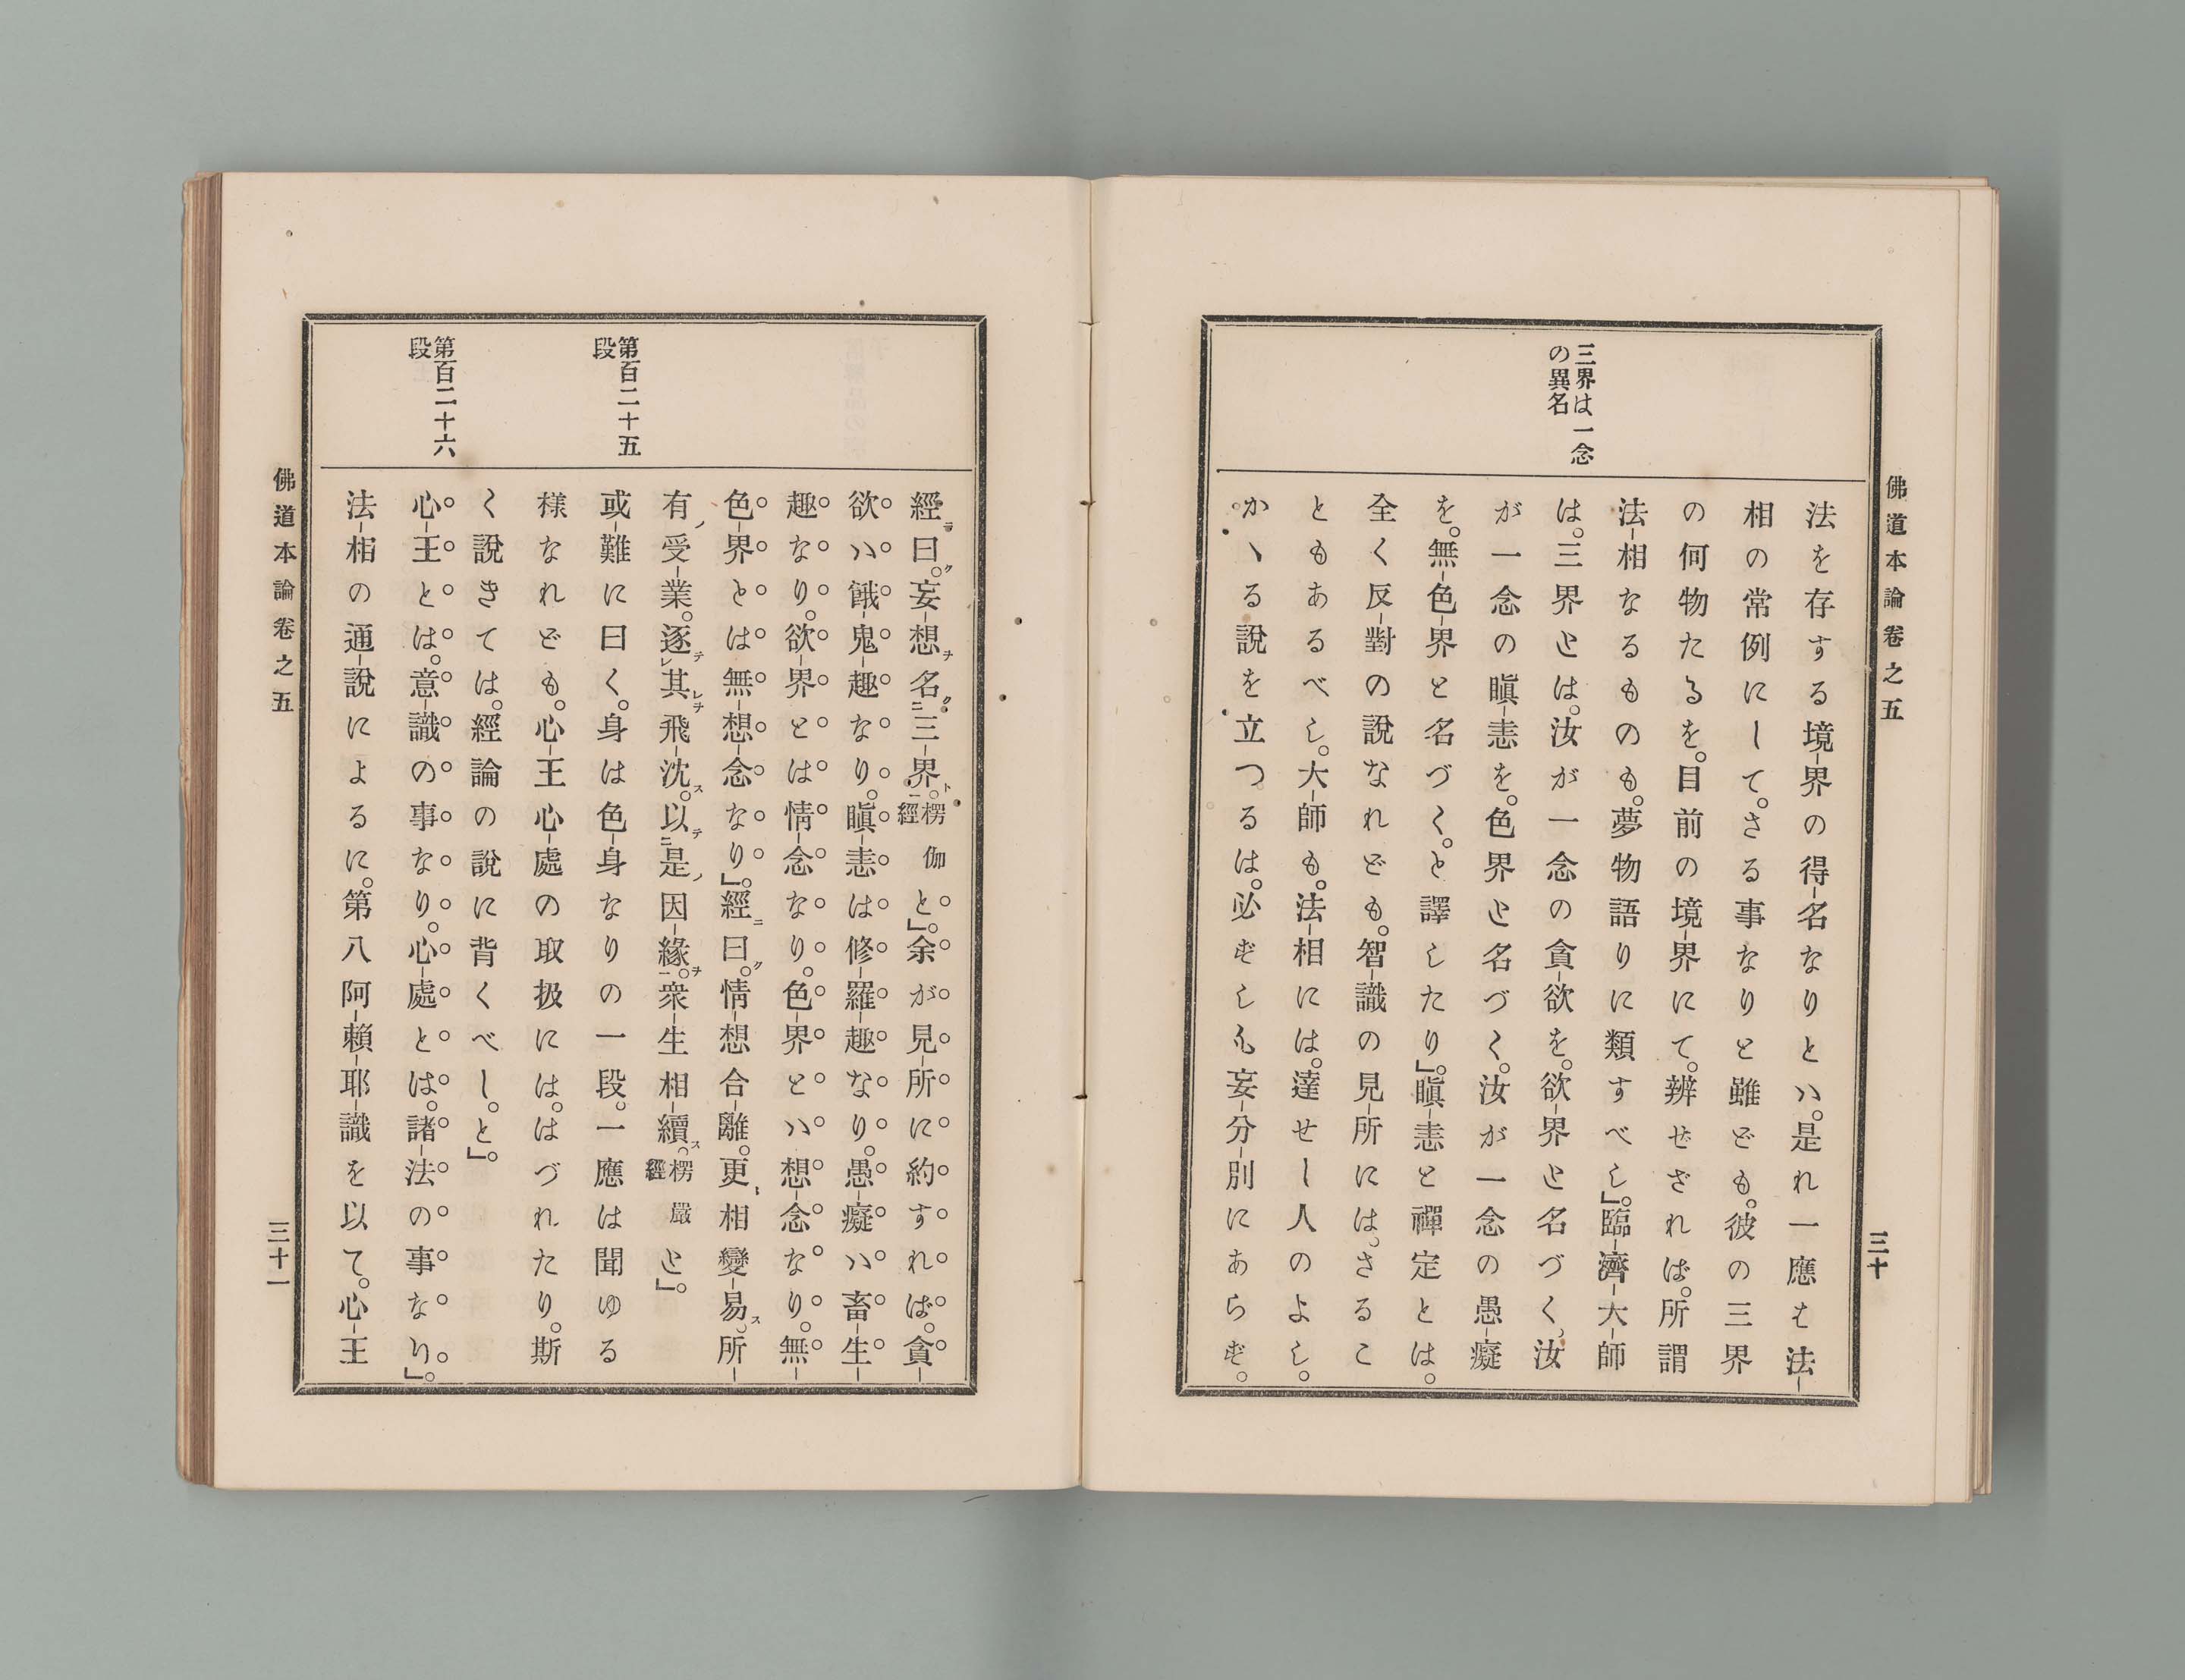 佛道本論卷之五
三十
三界は一念
の異名
法を存する境-界の得-名なりとハ。是れ一應は法-
相の常例にして。さる事なりと雖ども。彼の三界
の何物たるを。目前の境-界にて。辨せざれば。所謂
法-相なるものも。夢物語りに類すべし」。臨-濟-大-師
は。三界とは。汝が一念の貪-欲を。欲-界と名づく。汝
が一念の瞋-恚を。色界と名づく。汝が一念の愚-癡
を。無-色-界と名づく。と譯したり」。瞋-恚と禪定とは。
全く反-對の說なれども。智-識の見-所には。さるこ
ともあるべし。大-師も。法-相には。達せし人のよし。
かゝる說を立つるは。必ずしも妄-分-別にあらず。
經曰。妄-想名三-界。楞伽經と」。余が見-所に約すれば。貪-
欲ハ餓-鬼-趣なり。瞋-恚は修-羅-趣なり。愚-癡ハ畜-生-
趣なり。欲-界とは情-念なり。色-界とハ想-念なり。無-
色-界とは無-想-念なり」。經曰。情-想合-離。更相變-易。所-
有受-業。逐其飛-沈。以是因-緣。衆-生相-續。楞嚴經と」。
第百二十五
段
或-難に曰く。身は色-身なりの一段。一應は聞ゆる
樣なれども。心-王心-處の取扱には。はづれたり。斯
く說きては。經論の說に背くべし。と」。
第百二十六
段
心-王とは。意-識の事なり。心-處とは。諸-法の事なり」。
法-相の通-說によるに。第八阿-賴-耶-識を以て。心-王
佛道本論卷之五
三十一